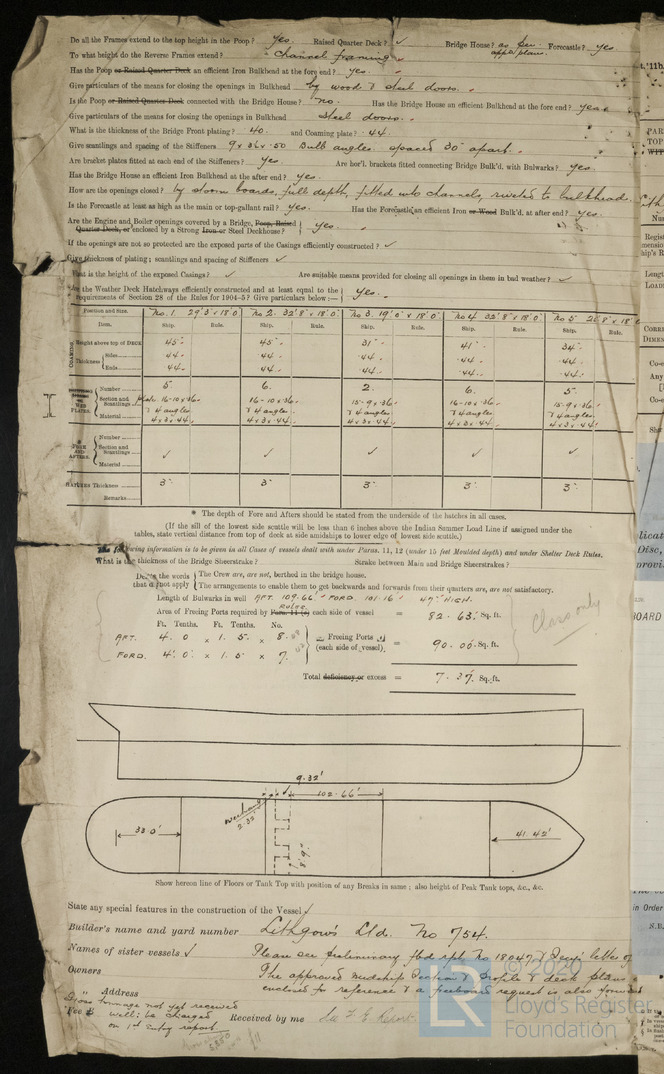 Do all the Frames extend to the top height in the Poop? yes. Raised Quarter Deck? ✓ Bridge House? as per appd plan. Forecastle? yes.
To what height do the Reverse Frames extend? Channel framing
Has the Poop or Raised Quarter Deck an efficient Iron Bulkhead at the fore end? yes.
Give particulars of the means for closing the openings in Bulkhead by wood & steel doors.
Is the Poop or Raised Quarter Deck connected with the Bridge House? no. Has the Bridge House an efficient Bulkhead at the fore end? yes
Give particulars of the means for closing the openings in Bulkhead Steel doors.
What is the thickness of the Bridge Front plating? .40. and Coaming plate? .44.
Give scantlings and spacing of the Stiffeners 9 x 3½ x .50 Bulb angles. spaced 30" apart.
Are bracket plates fitted at each end of the Stiffeners? yes. Are hor'l. brackets fitted connecting Bridge Bulk'd. with Bulwarks? yes.
Has the Bridge House an efficient Iron Bulkhead at the after end? yes.
How are the openings closed? by storm boards, full depth, fitted into channels, riveted to bulkhead.
Is the Forecastle at least as high as the main or top-gallant rail? yes. Has the Forecastle an efficient Iron or Wood Bulk'd. at after end? yes.
Are the Engine and Boiler openings covered by a Bridge, Poop, Raised
Quarter Deck, or enclosed by a Strong Iron or Steel Deckhouse? yes.
If the openings are not so protected are the exposed parts of the Casings efficiently constructed? ✓
Give thickness of plating; scantlings and spacing of Stiffeners ✓
What is the height of the exposed Casings? ✓ Are suitable means provided for closing all openings in them in bad weather? ✓
Are the Weather Deck Hatchways efficiently constructed and at least equal to the
requirements of Section 28 of the Rules for 1904-5? Give particulars below:— yes.
Position and Size. No. 1 29'.3" x 18'.0" No. 2. 32'.8" x 18'.0" No 3. 19'.0" x 18'.0" No 4 32'.8" x 18'.0" No 5
Item. Ship. Rule. Ship. Rule. Ship. Rule. Ship. Rule. Ship. Rule.
COAMING
Height above top of DECK 45" 45" 31" 41" 34"
Thickness Sides .44 .44 .44 .44 .44
Ends .44 .44 .44 .44 .44
WEB PLATES
Number 5 6. 2. 6. 5.
Section and Scantlings 16-10 x .36 16-10 x .36 15-9 x .36 16-10 x .36 15-9 x .36
4 angles 4 angles 4 angles 4 angles 4 angles
Material 4 x 3 x .44 4 x 3 x .44 4 x 3 x .44 4 x 3 x .44 4 x 3 x .44
FORE AND AFTERS.
Number
Section and Scantlings ✓ ✓ ✓ ✓ ✓
Material
HATCHES Thickness 3" 3" 3" 3" 3"
Remarks
* The depth of Fore and Afters should be stated from the underside of the hatches in all cases.
(If the sill of the lowest side scuttle will be less than 6 inches above the Indian Summer Load Line if assigned under the
tables, state vertical distance from top of deck at side amidships to lower edge of lowest side scuttle.)
The following information is to be given in all Cases of vessels dealt with under Paras. 11, 12 (under 15 feet Moulded depth) and under Shelter Deck Rules.
What is the thickness of the Bridge Sheerstrake? Strake between Main and Bridge Sheerstrakes?
Delete the words The Crew are, are not, berthed in the bridge house.
that do not apply The arrangements to enable them to get backwards and forwards from their quarters are, are not satisfactory.
Length of Bulwarks in well AFT. 109.66' FORD. 101.16' 47" HIGH.
Area of Freeing Ports required by RULES each side of vessel = 82.63. Sq. ft.
Ft. Tenths. Ft. Tenths. No.
AFT. 4. 0 x 1. 5. x 8. Freeing Ports
FORD. 4. 0. x 1. 5 x 7. (each side of vessel) = 90.00. Sq. ft.
Class only
Total deficiency or excess = 7.37. Sq. ft.
9.32'
102.66'
33.0'
2.33'
8'.9"
41.42'
Show hereon line of Floors or Tank Top with position of any Breaks in same; also height of Peak Tank tops, &c., &c.
State any special features in the construction of the Vessel ✓
Builder's name and yard number Lithgows Ltd. No 754.
Names of sister vessels ✓ Please see preliminary fbd rpt. No 18047 & Secy's letter of
Owners The approved Midship Section & profile & deck plans
" Address enclosed for reference & a freeboard request is also forwd
Gross tonnage not yet received
Fee £ will be charged Received by me
on 1st Entry report
© 2020
LR
Lloyd's Register
Foundation